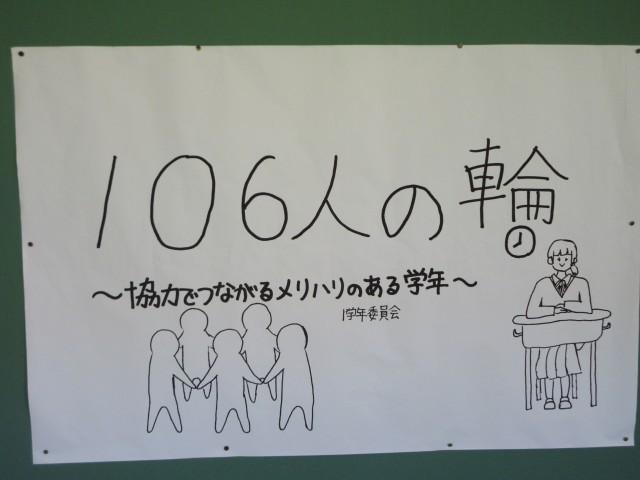 106人の輪
～協力でつながるメリハリのある学年～
1学年委員会